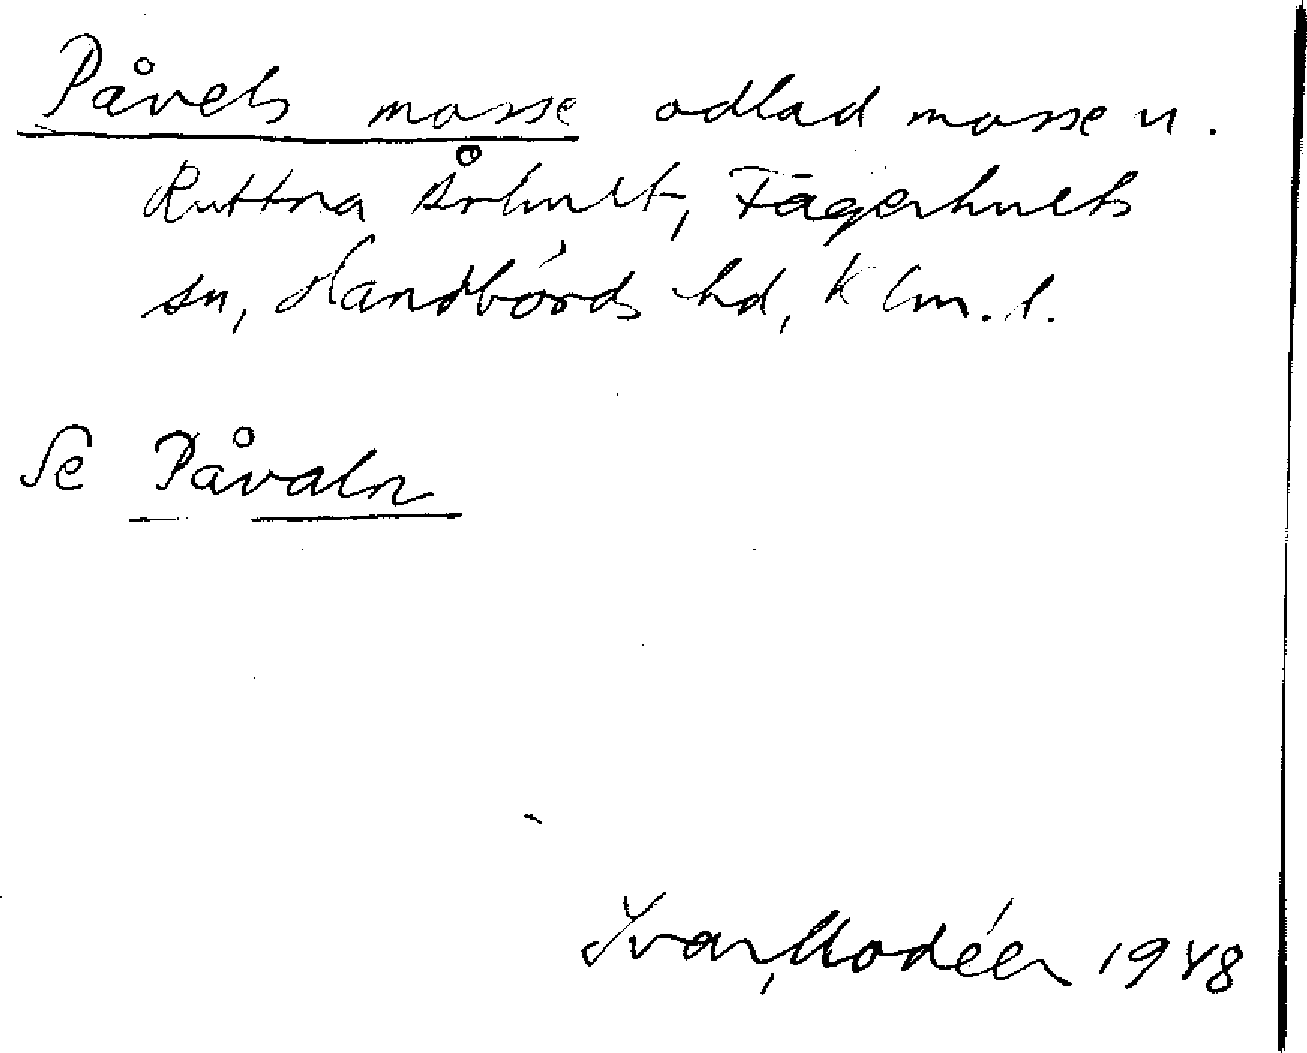 Påvels mosse odlad mosse u.
Ruttna Århult, Fagerhults
sn, Handbörds hd, Klm. l.
Se Påvaln
Ivar Modéer 1948